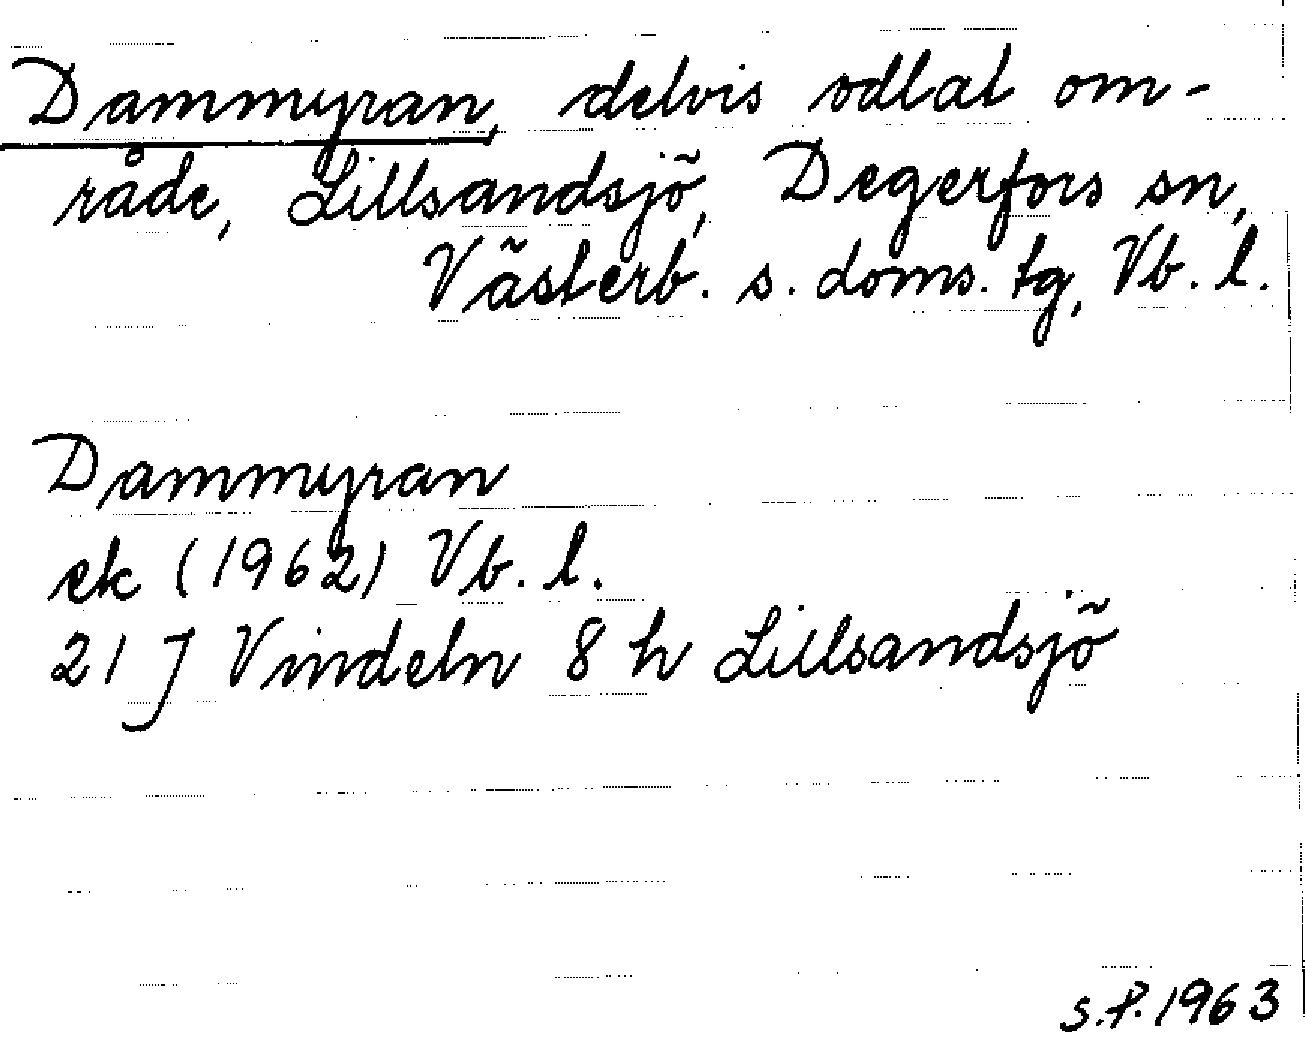 Dammyran, delvis odlat om-
råde, Lillsandsjö, Degerfors sn,
Västerb. s. doms. tg, Vb. l.
Dammyran
ek (1962) Vb. l.
21 J Vindeln 8 h Lillsandsjö
S.P. 1963